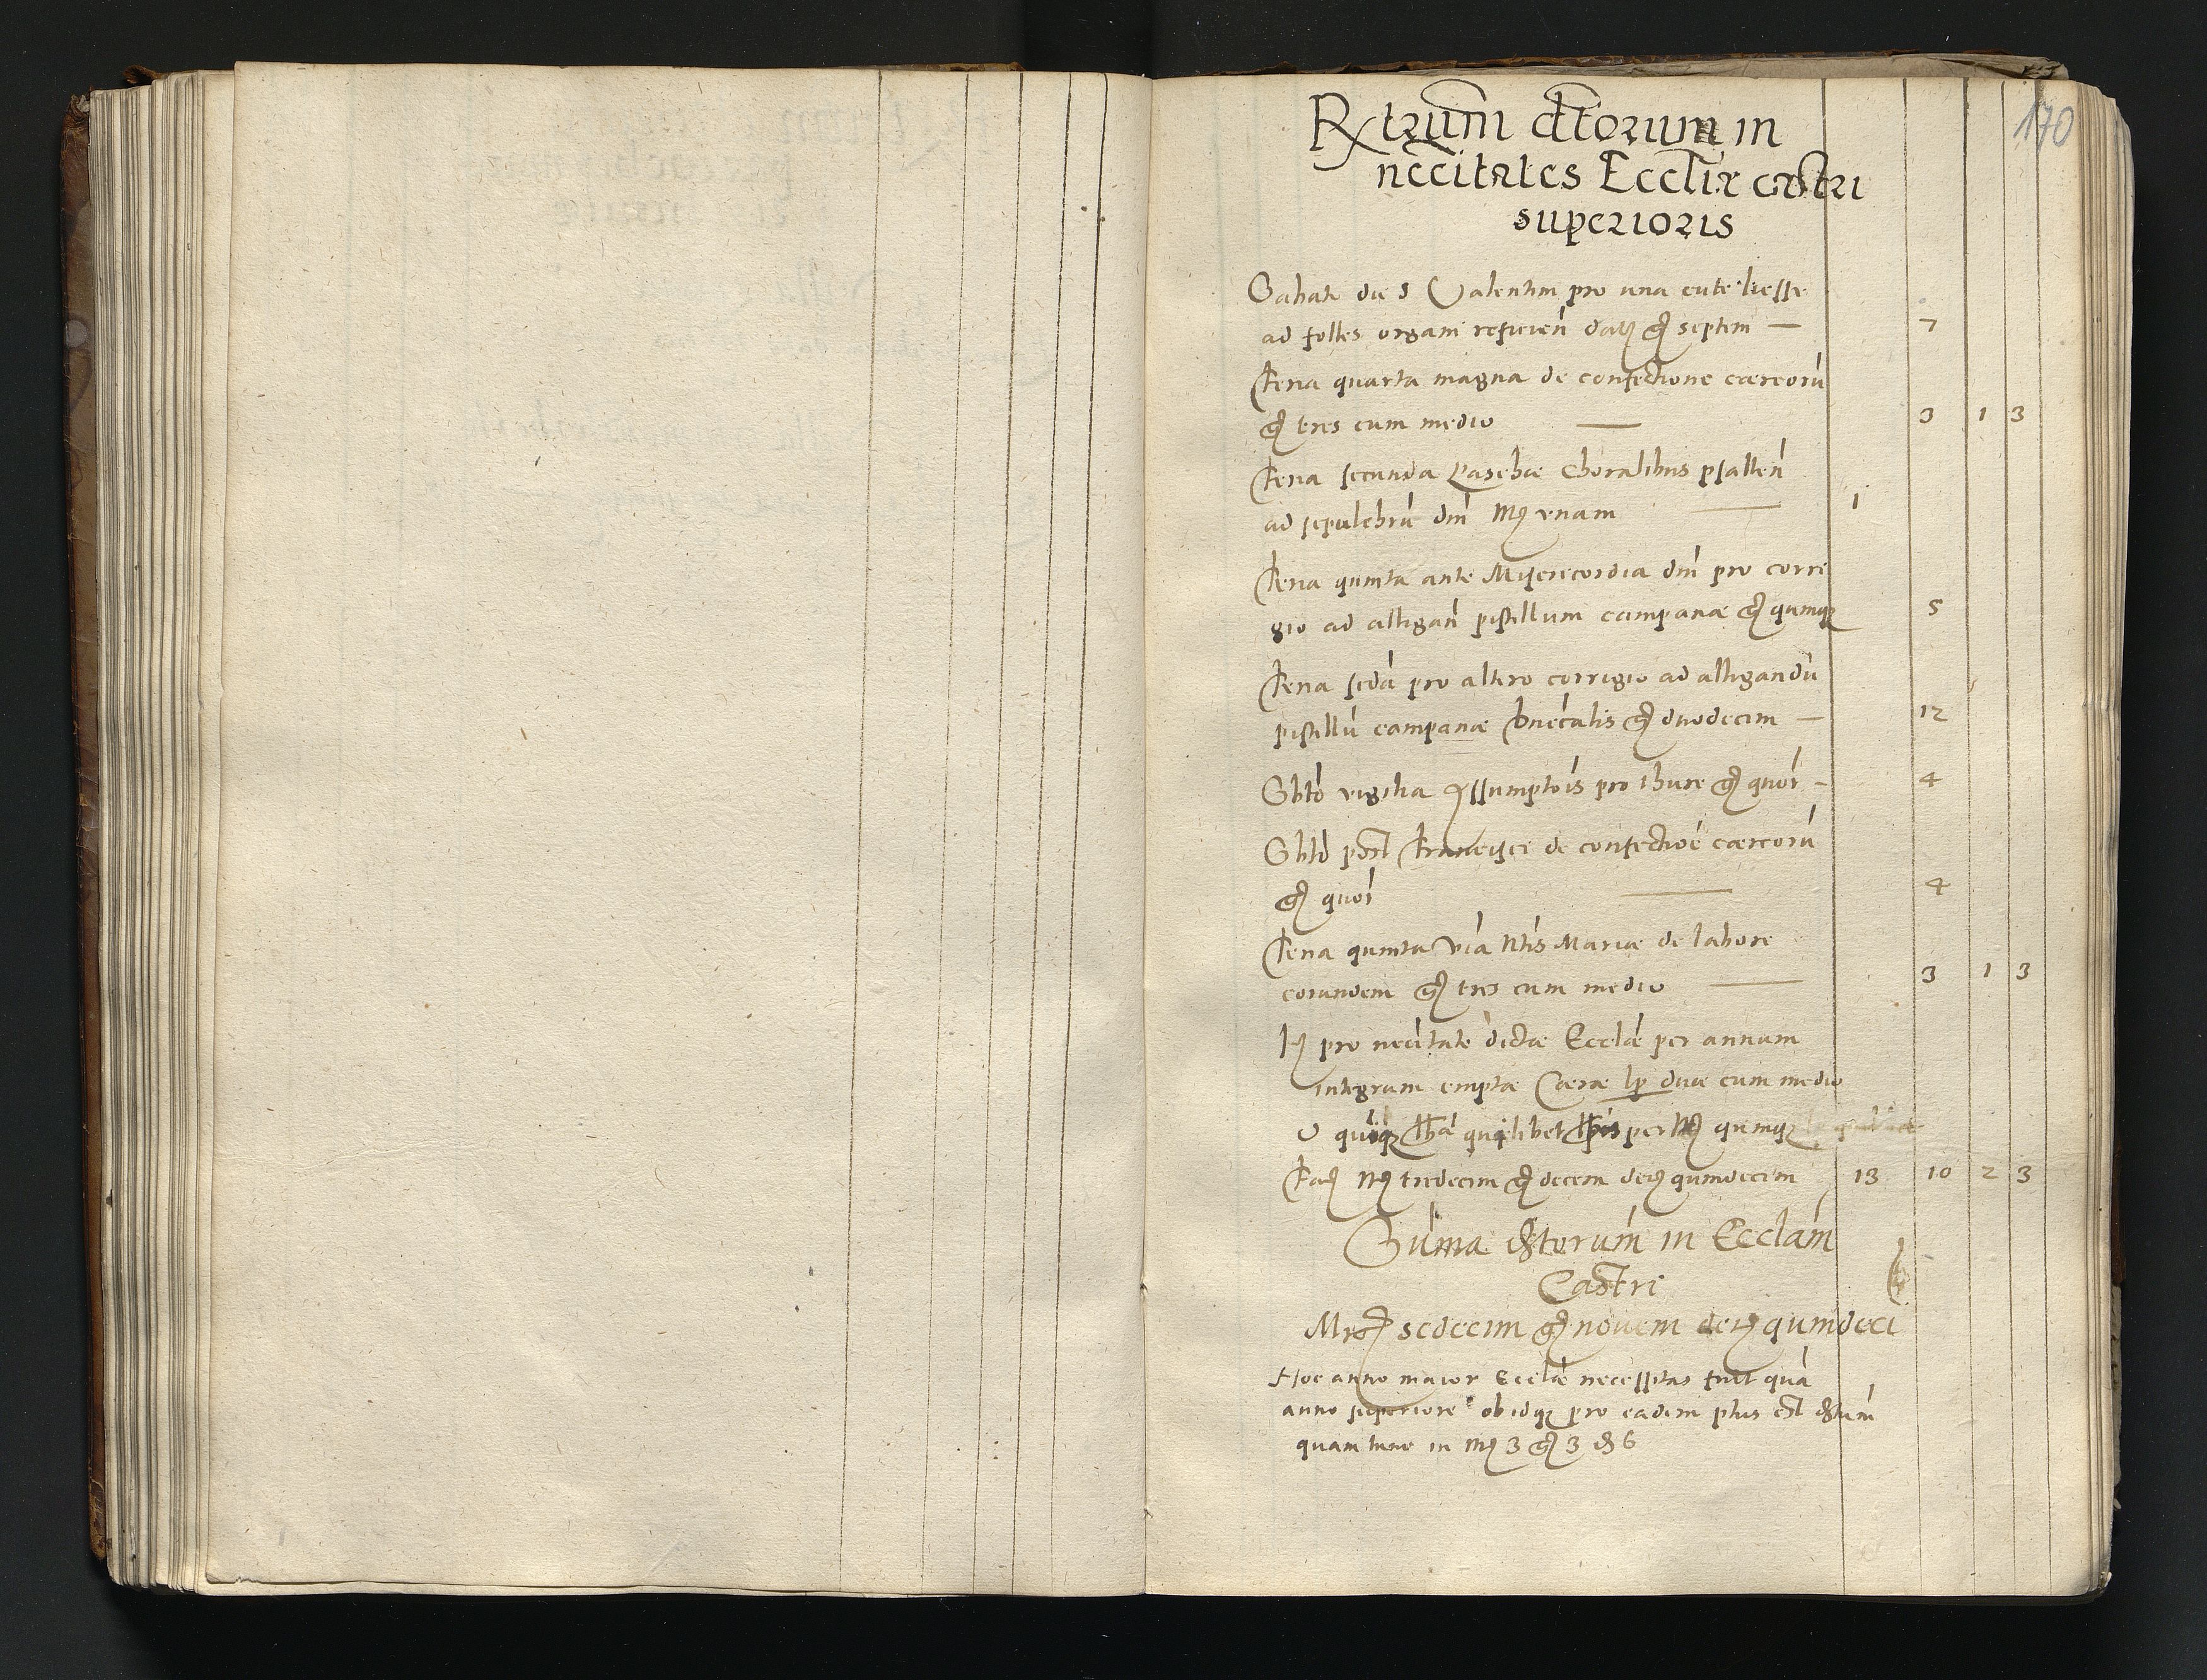 170
Rtrum dtorum in
neccitates Eccliæ castri
superioris
Sabato die S Valentini pro una cute
ad folles organi reficien datus gr septem — 7
Feria quarta magna de confectione cæreoru
gr tres cum medio — 3 1 3
Feria secunda Paschæ Choralibus psallen
ad sepulchru dni Mr unam — 1
Feria quinta ante Misericordia dni pro corri
gio ad alligan pistillum campanæ gr quinqz 5
Feria scda pro altero corrigio ad alligandu
pistillu campanæ gr duodecim — 12
Sbto vigilia Assumptois pro thure gr quor — 4
Sbto post Francisci de confectioe cæreoru
gr quor — 4
Feria quinta via Ntis Mariæ de labore
eorundem gr tres cum medio — 3 1 3
It pro necitate dictæ Ecclæ per annum
integrum emptæ Ceræ lp duæ cum medio
per Mr quinqz
Fac Mr tredecim gr decem den quindecim 13 10 2 3
Suma dstorum in Ecclam
Castri
Mrc sedecim gr novem den quindeci
Hoc anno maior Ecclæ necessitas fuit qua
anno superiore ob idqz pro eadem plus est dstum
quam tunc in Mr 3 gr 3 d 6